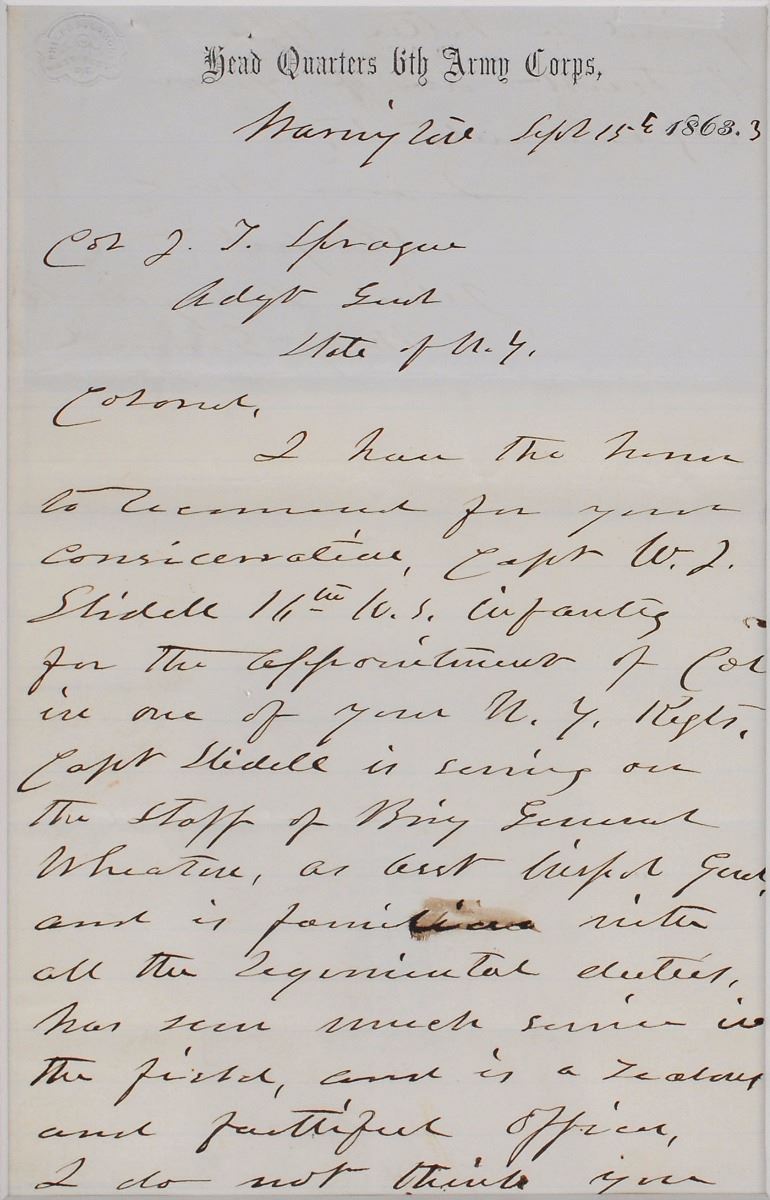 Head Quarters 6th Army Corps,
Sept 15th 1863. 3
Col J. T. Sprague
Adgt Genl
State of N. Y.
Colonel,
I have the honor
to recommend for your
consideration, Capt W. J.
Slidell 16th U.S. Infantry
for the appointment of Col
in one of your N. Y. Regts.
Capt Slidell is serving on
the staff of Brig General
Wheaton, as asst Inspct Genl
and is familiar with
all the regimental duties,
has seen much service in
the field, and is a zealous
and faithful officer,
I do not think you